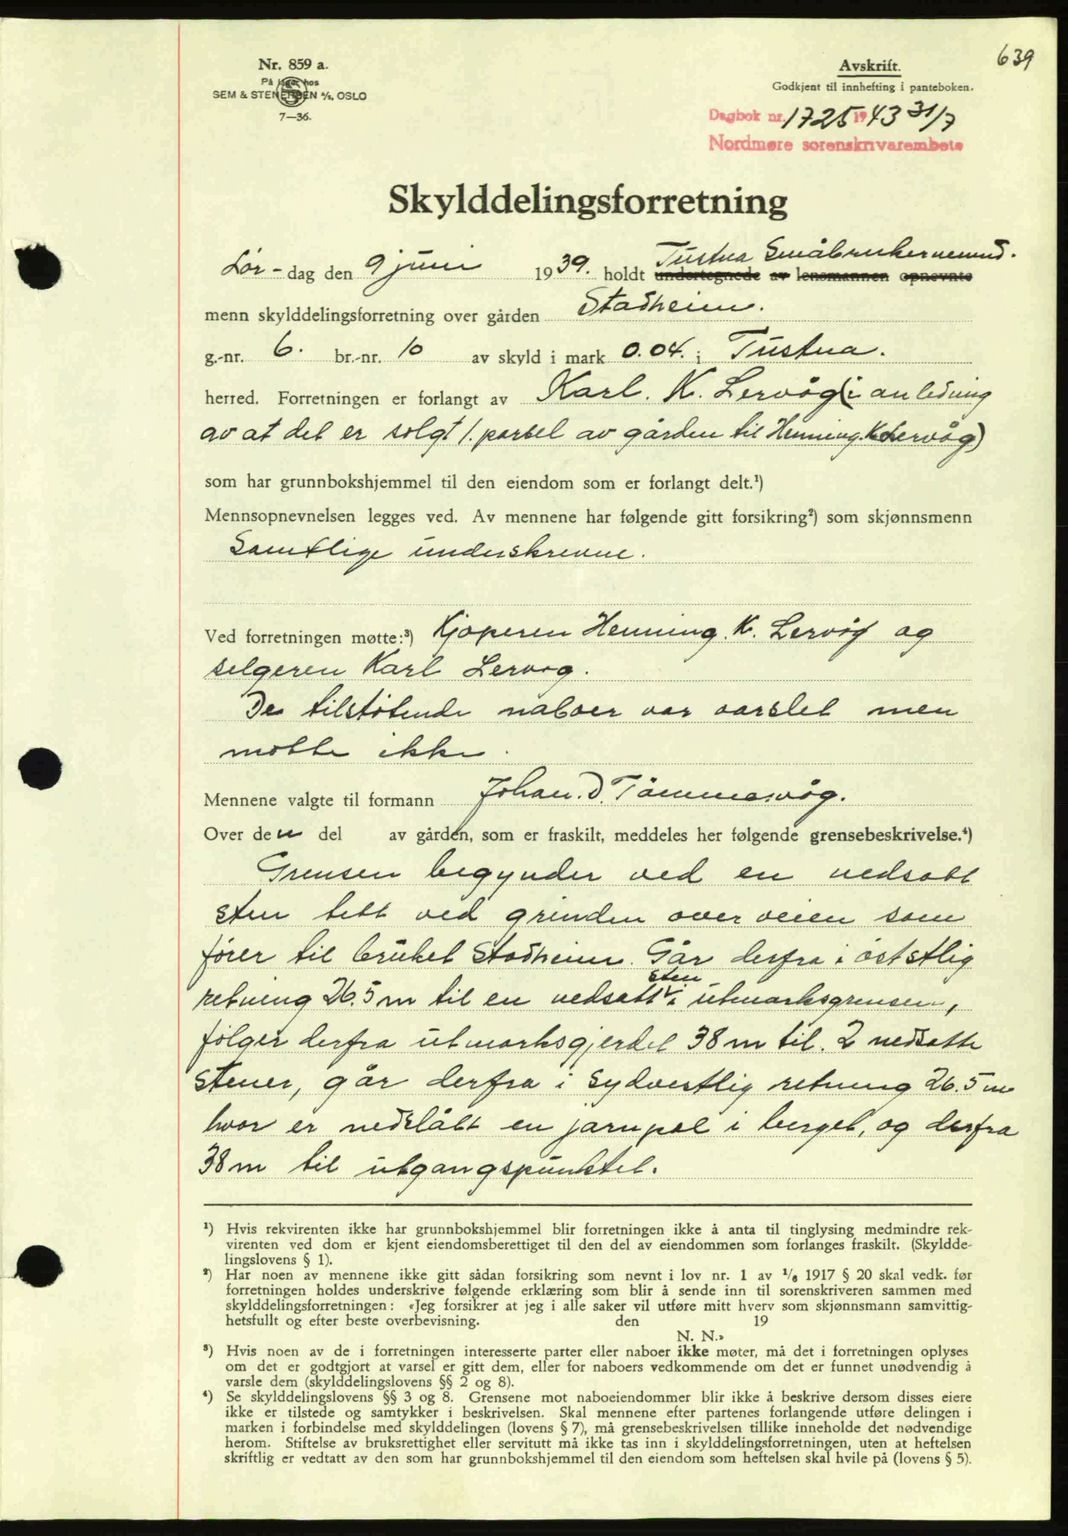 639
Nr. 859 a.
På lager hos
SEM & STENERSEN A/S, OSLO
7—36.
Avskrift.
Godkjent til innhefting i panteboken.
Dagbok nr. 1725 1943 31/7
Nordmøre sorenskrivarembete
Skylddelingsforretning
Lør-dag den 9 juni 1939. holdt Tustna Småbrukernemnd.
undertegnede av lensmannen opnevnte
menn skylddelingsforretning over gården Stadheim.
g.-nr. 6. br.-nr. 10 av skyld i mark 0.04. i Tustna.
herred. Forretningen er forlangt av Karl. K. Lervåg (i anledning
av at det er solgt 1. parsel av gården til Henning. K. Lervåg)
som har grunnbokshjemmel til den eiendom som er forlangt delt.¹)
Mennsopnevnelsen legges ved. Av mennene har følgende gitt forsikring²) som skjønnsmenn
Samtlige underskrevne.
Ved forretningen møtte:³) Kjøperen Henning. K. Lervåg og
selgeren Karl Lervog.
De tilstøtende naboer var varslet men
møtte ikke.
Mennene valgte til formann Johan. D. Tømmervåg.
Over den del av gården, som er fraskilt, meddeles her følgende grensebeskrivelse.⁴)
Grensen begynder ved en nedsatt
sten tett ved grinden over veien som
fører til bruket Stadheim. Går derfra i øststlig
retning 26.5 m til en nedsatt sten i utmarksgrensen,
følger derfra utmarksgjerdet 38 m til. 2 nedsatte
stener, går derfra i sydvestlig retning 26.5 m
hvor er nedslått en jarnpel i berget, og derfra
38 m til utgangspunktet.
¹) Hvis rekvirenten ikke har grunnbokshjemmel blir forretningen ikke å anta til tinglysing medmindre rek-
virenten ved dom er kjent eiendomsberettiget til den del av eiendommen som forlanges fraskilt. (Skyldde-
lingslovens § 1).
²) Har noen av mennene ikke gitt sådan forsikring som nevnt i lov nr. 1 av 1/6 1917 § 20 skal vedk. før
forretningen holdes underskrive følgende erklæring som blir å sende inn til sorenskriveren sammen med
skylddelingsforretningen: «Jeg forsikrer at jeg i alle saker vil utføre mitt hverv som skjønnsmann samvittig-
hetsfullt og efter beste overbevisning. den 19
N. N.»
³) Hvis noen av de i forretningen interesserte parter eller naboer ikke møter, må det i forretningen oplyses
om det er godtgjort at varsel er gitt dem, eller for naboers vedkommende om det er funnet unødvendig å
varsle dem (skylddelingslovens §§ 2 og 8).
⁴) Se skylddelingslovens §§ 3 og 8. Grensene mot naboeiendommer blir ikke å beskrive dersom disses eiere
ikke er tilstede og samtykker i beskrivelsen. Skal mennene efter partenes forlangende utføre delingen i
marken i forbindelse med skylddelingen (lovens § 7), må grensebeskrivelsen tillike inneholde det nødvendige
herom. Stiftelse av bruksrettighet eller servitutt må ikke tas inn i skylddelingsforretningen, uten at heftelsen
skriftlig er vedtatt av den som har grunnbokshjemmel til den eiendom som heftelsen skal hvile på (lovens § 5).